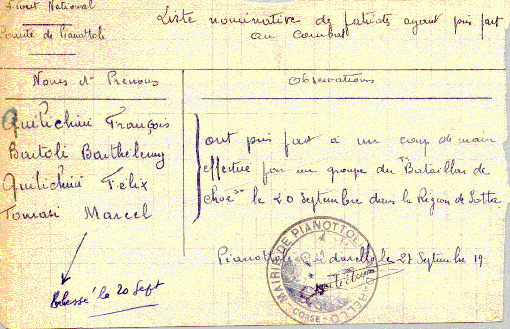 Front National
Comité de Pianottoli
Liste nominative de patriots ayant pris part
au combat
Noms et Prénoms
Observations
Quilichini François
Bartoli Barthélemy
Quilichini Félix
Tomasi Marcel
ont pris part à un coup de main
effectué par un groupe du Bataillon de
choc le 20 Septembre dans la Région de Sotta
Pianottoli Caldarello, le 27 Septembre 19
Blessé le 20 Sept
MAIRIE DE PIANOTTOLI
CORSE